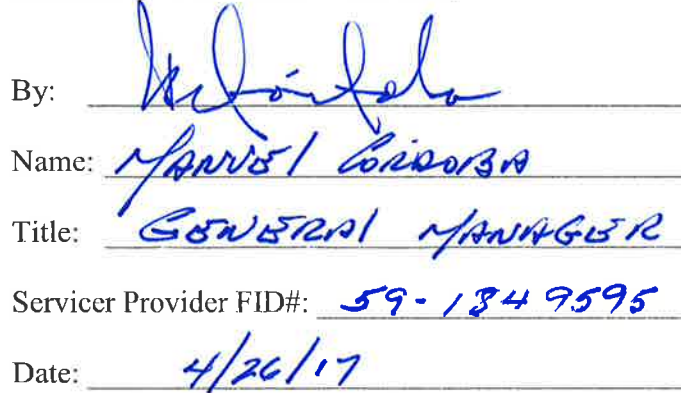 By:
Name: MANUEL CORDOBA
Title: GENERAL MANAGER
Servicer Provider FID#: 59-1349595
Date: 4/26/17